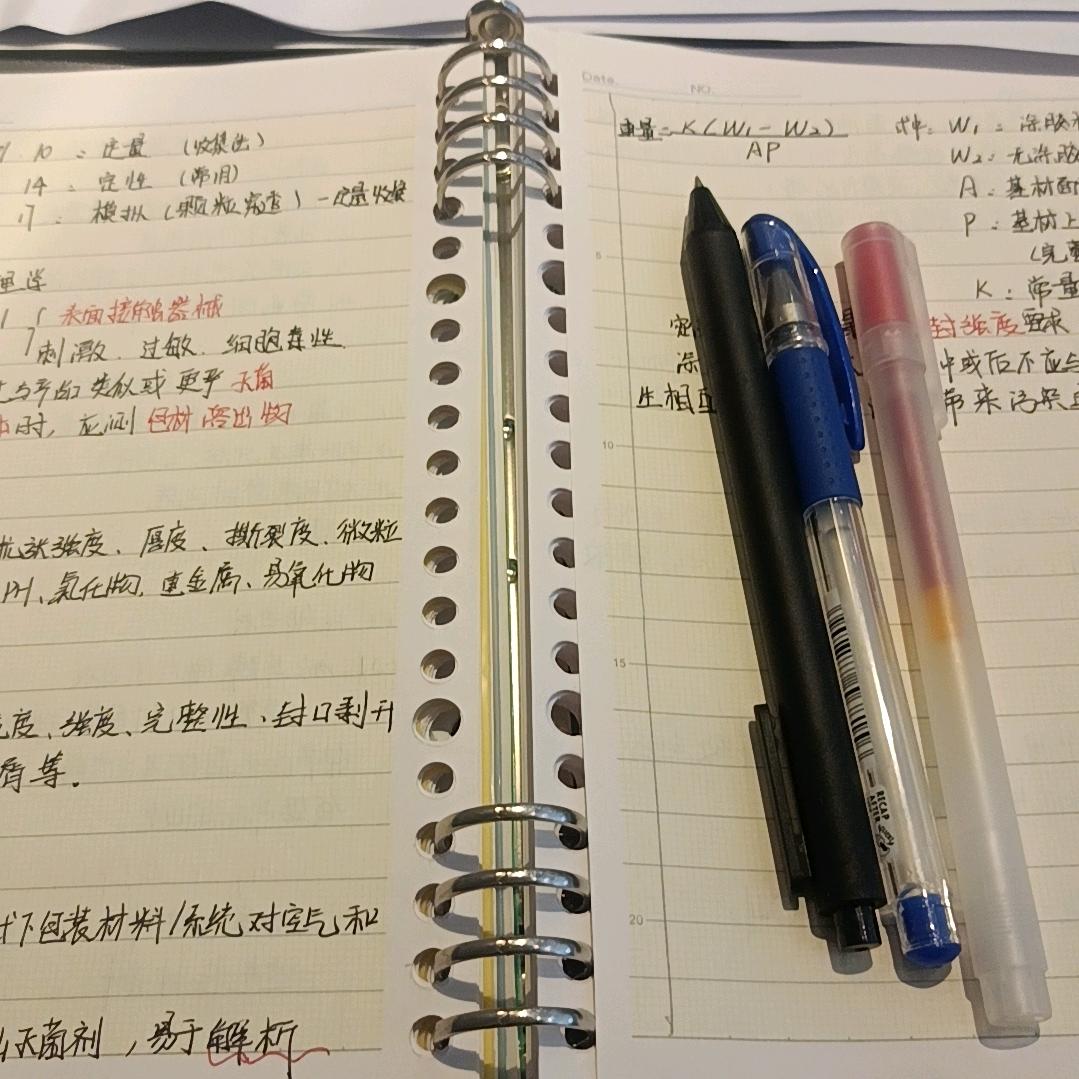 10：定量（收集法）
14：定性（常用）
17：模拟（颗粒
表面接触器械
刺激、过敏、细胞毒性
类似或更 灭菌
时，应测包材溶出物
抗张强度、厚度、撕裂度、微粒
PH、氯化物、重金属、易氧化物
度、强度、完整性、封口剥开
屑等。
下包装材料/系统对空气和
灭菌剂，易于解析
Date. NO.
重量=K(W₁-W₂)
AP
式中：W₁：涂胶
W₂：无涂胶
A：基材面
P：基材上
(完整
K：常量
5
密 封强度要求
涂 中或后不应与
生相互 带来污染
10
15
20
RECAP
AFTER